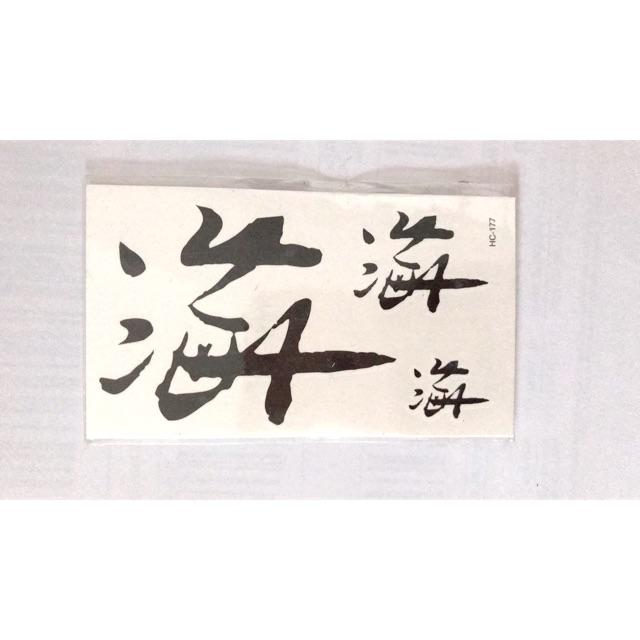 海
海
海
HC-177